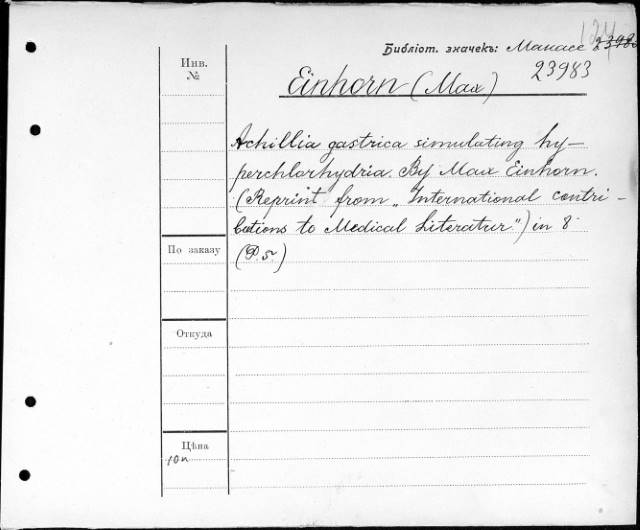 124
Библіот. значекъ: Манасе 23980
23983
Инв.
№
Einhorn (Max)
Achillia gastrica simulating hy-
perchlorhydria. By Max Einhorn.
(Reprint from „International contri-
butions to Medical Literatur") in 8
(P. 5.)
По заказу
Откуда
Цѣна
10